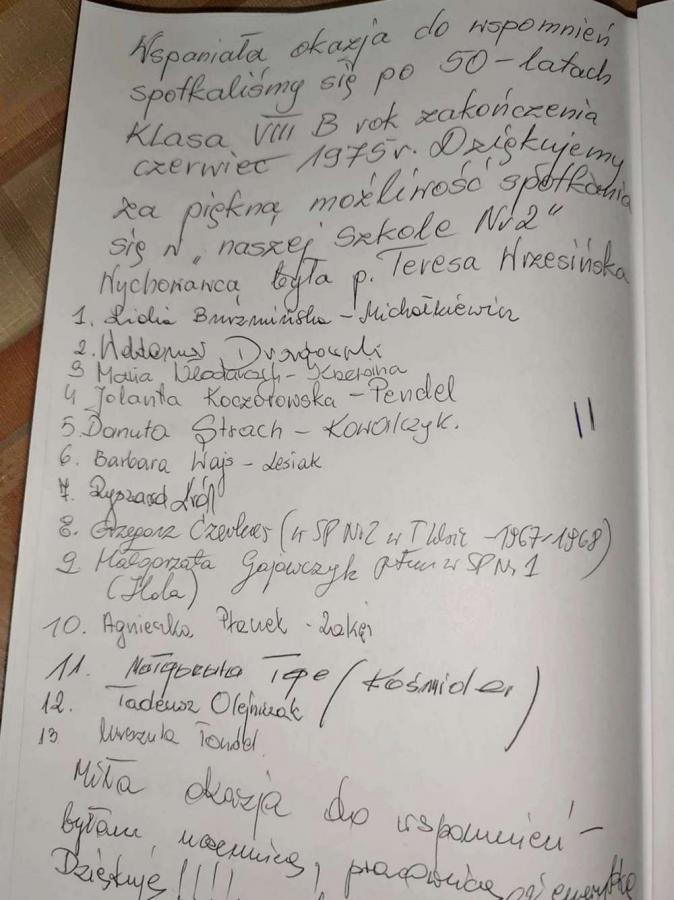 Wspaniała okazja do wspomnień
spotkaliśmy się po 50-latach
Klasa VIII B rok zakończenia
czerwiec 1975 r. Dziękujemy
za piękną możliwość spotkania
się w "naszej Szkole Nr 2"
Wychowawcą była p. Teresa Wrzesińska
1. Lidia Burzmińska - Michałkiewicz
2.
3 Maria
4 Jolanta Koczorowska - Pendel
5. Danuta Strach - Kowalczyk.
6. Barbara Wajs - Lesiak
7. Ryszard Król
8. Grzegorz (w SP Nr 2 w - 1967/1968)
9 Małgorzata Gajowczyk w SP Nr 1
10. Agnieszka
11. Małgorzata (Kośmider)
12. Tadeusz Olejniczak
13 Urszula
Miła okazja do wspomnień -
byłam uczennicą, pracownicą
Dziękuję !!!!